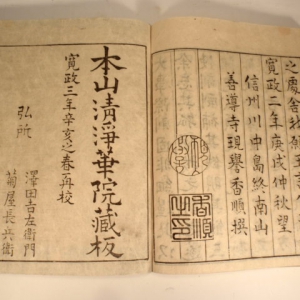 寛政二年庚戌仲秋望
信州川中島終南山
善導寺現譽香順撰
香順之印
本山清淨華院藏板
寛政三年辛亥之春再校
弘所
澤田吉左衛門
菊屋長兵衛